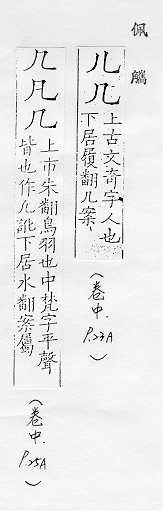 佩觿
儿几
上古文奇字人也
下居履翻几案
（卷中. P.23A）
几凡几
上市朱翻鳥羽也中梵字平聲
皆也作凢訛下居水翻案屬
（卷中. P.25A）